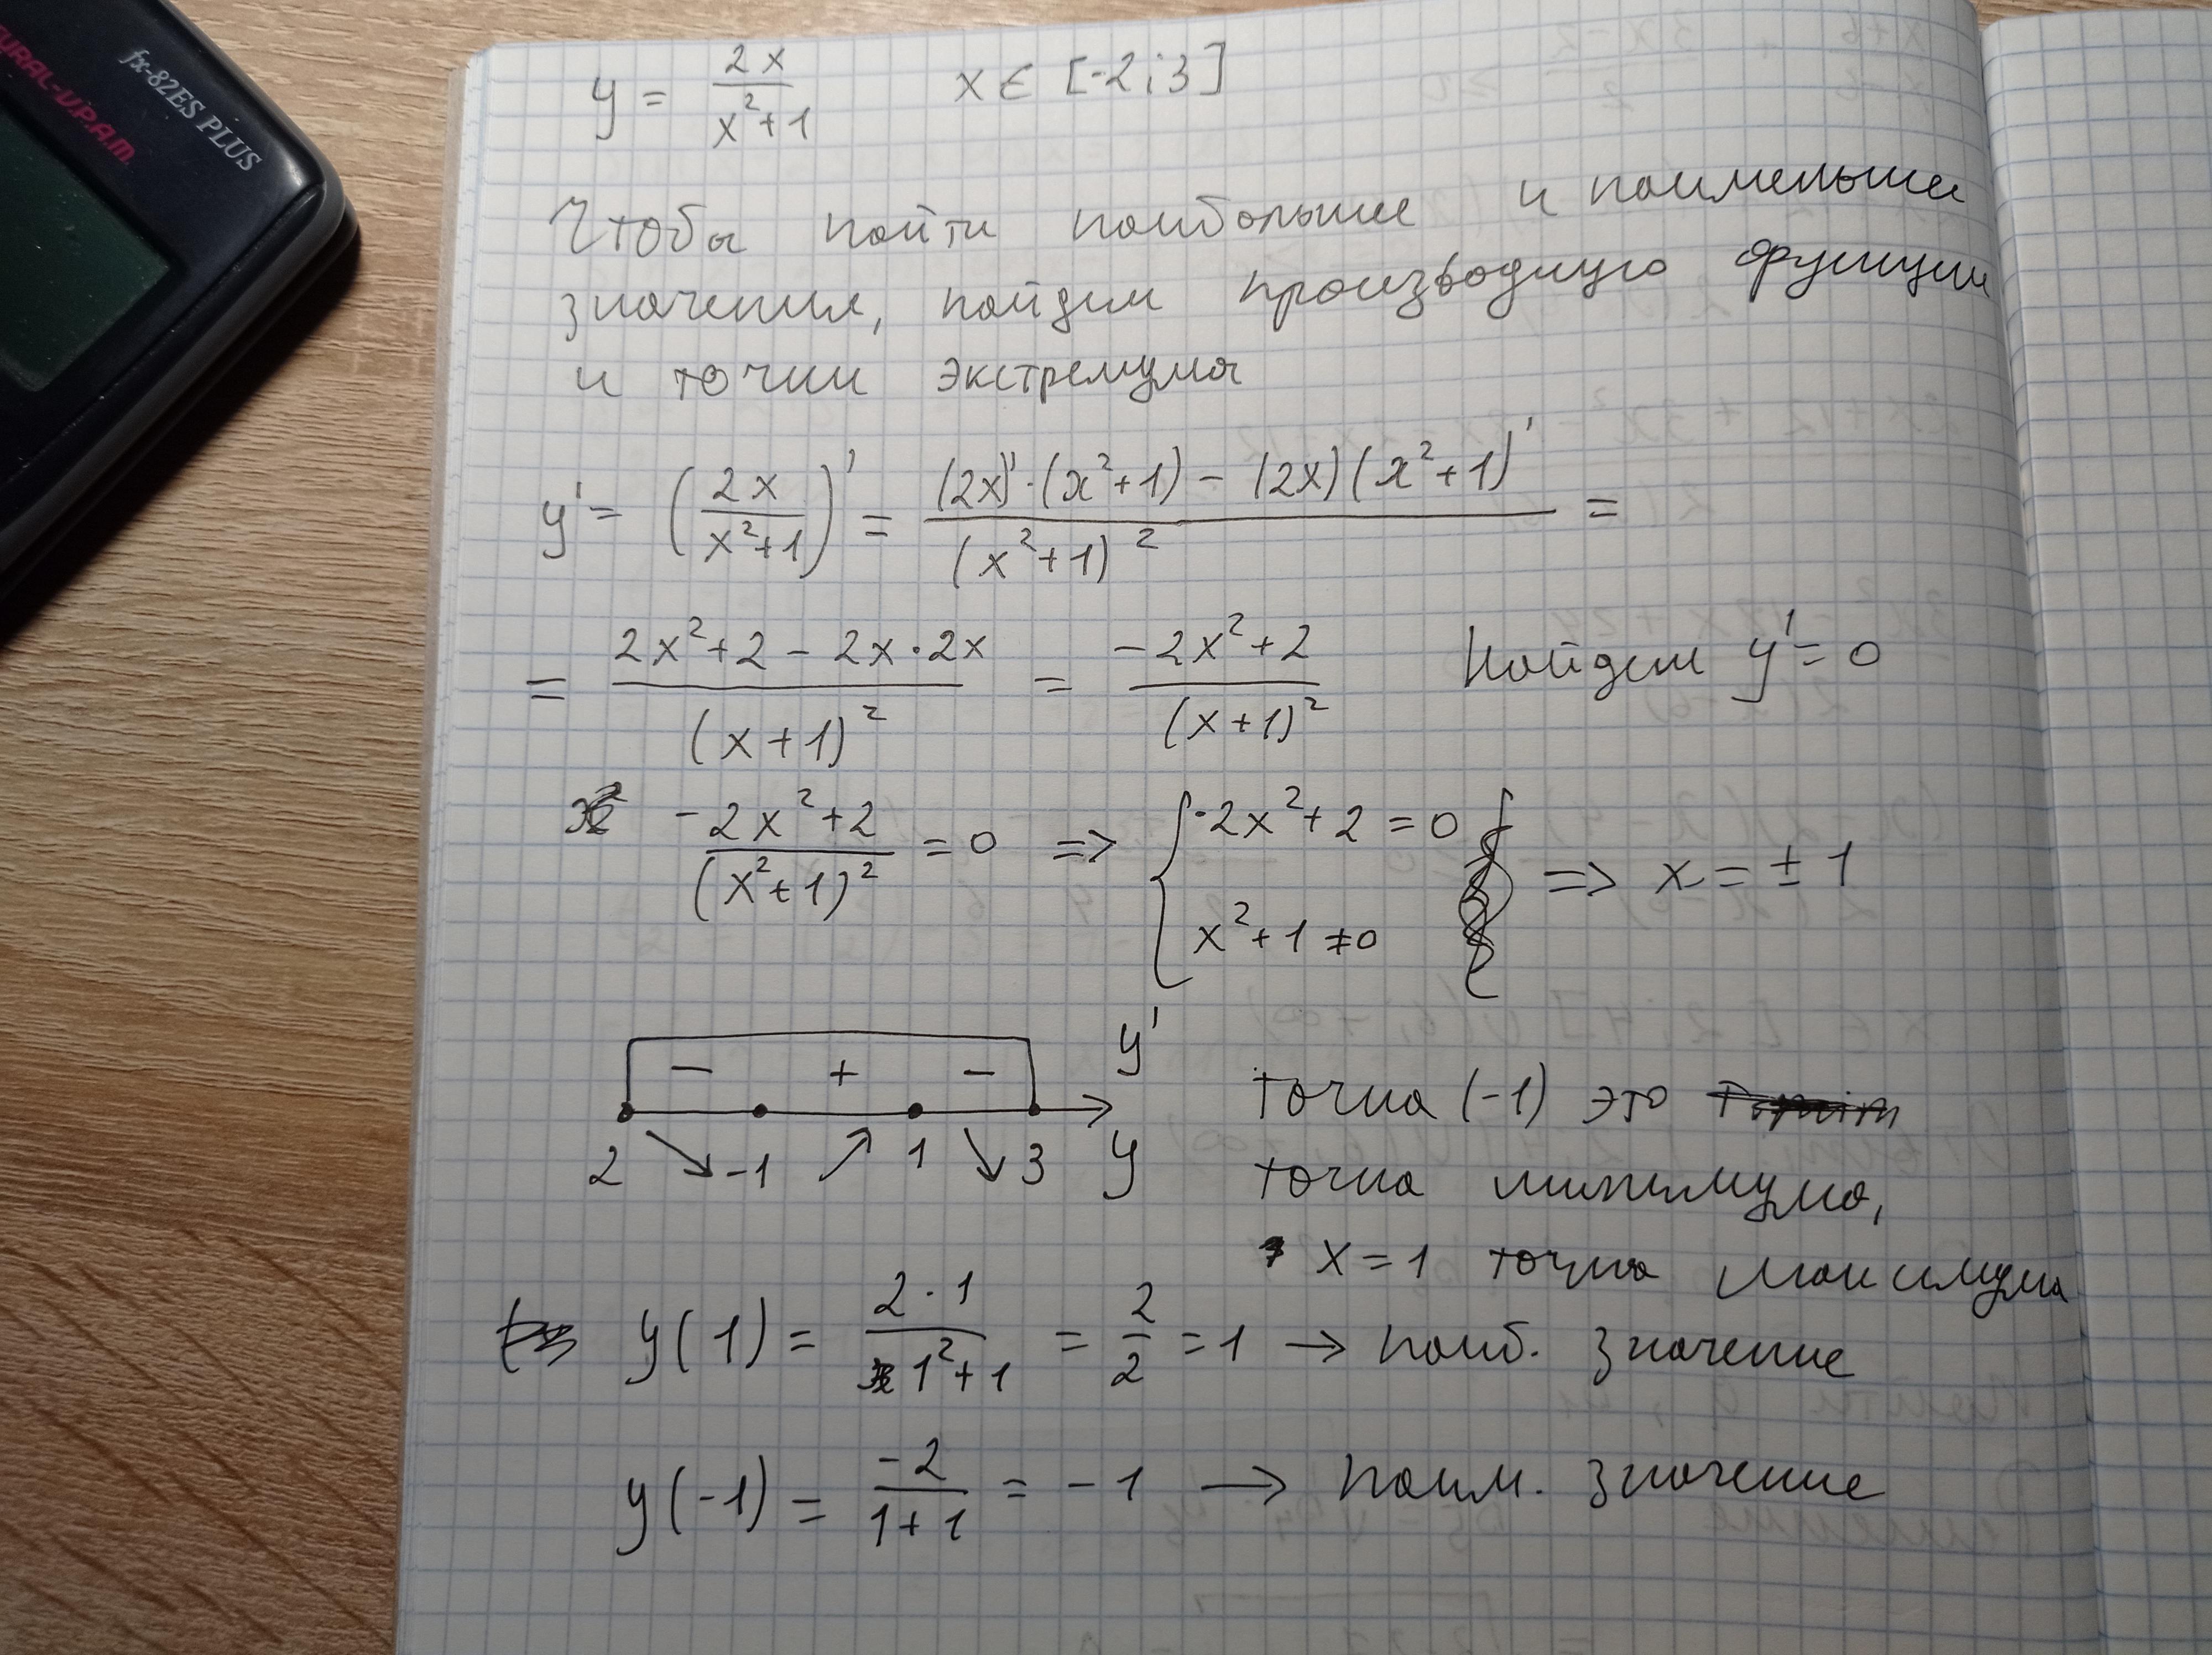 URAL-V.P.A.M.
fx-82ES PLUS
y = 2x/(x²+1) x ∈ [-2;3]
Чтобы найти наибольшее и наименьшее
значения, найдем производную функции
и точки экстремума
y' = (2x/(x²+1))' = ((2x)'·(x²+1) - (2x)(x²+1)')/(x²+1)² =
= (2x²+2 - 2x·2x)/(x+1)² = (-2x²+2)/(x+1)² Найдем y'=0
(-2x²+2)/(x²+1)² = 0 => { -2x²+2 = 0 => x = ±1
x²+1 ≠ 0
y'
- + -
2 ↘ -1 ↗ 1 ↘ 3 y
точка (-1) это
точка минимума,
x = 1 точка максимума
y(1) = (2·1)/(1²+1) = 2/2 = 1 → наиб. значение
y(-1) = -2/(1+1) = -1 → наим. значение